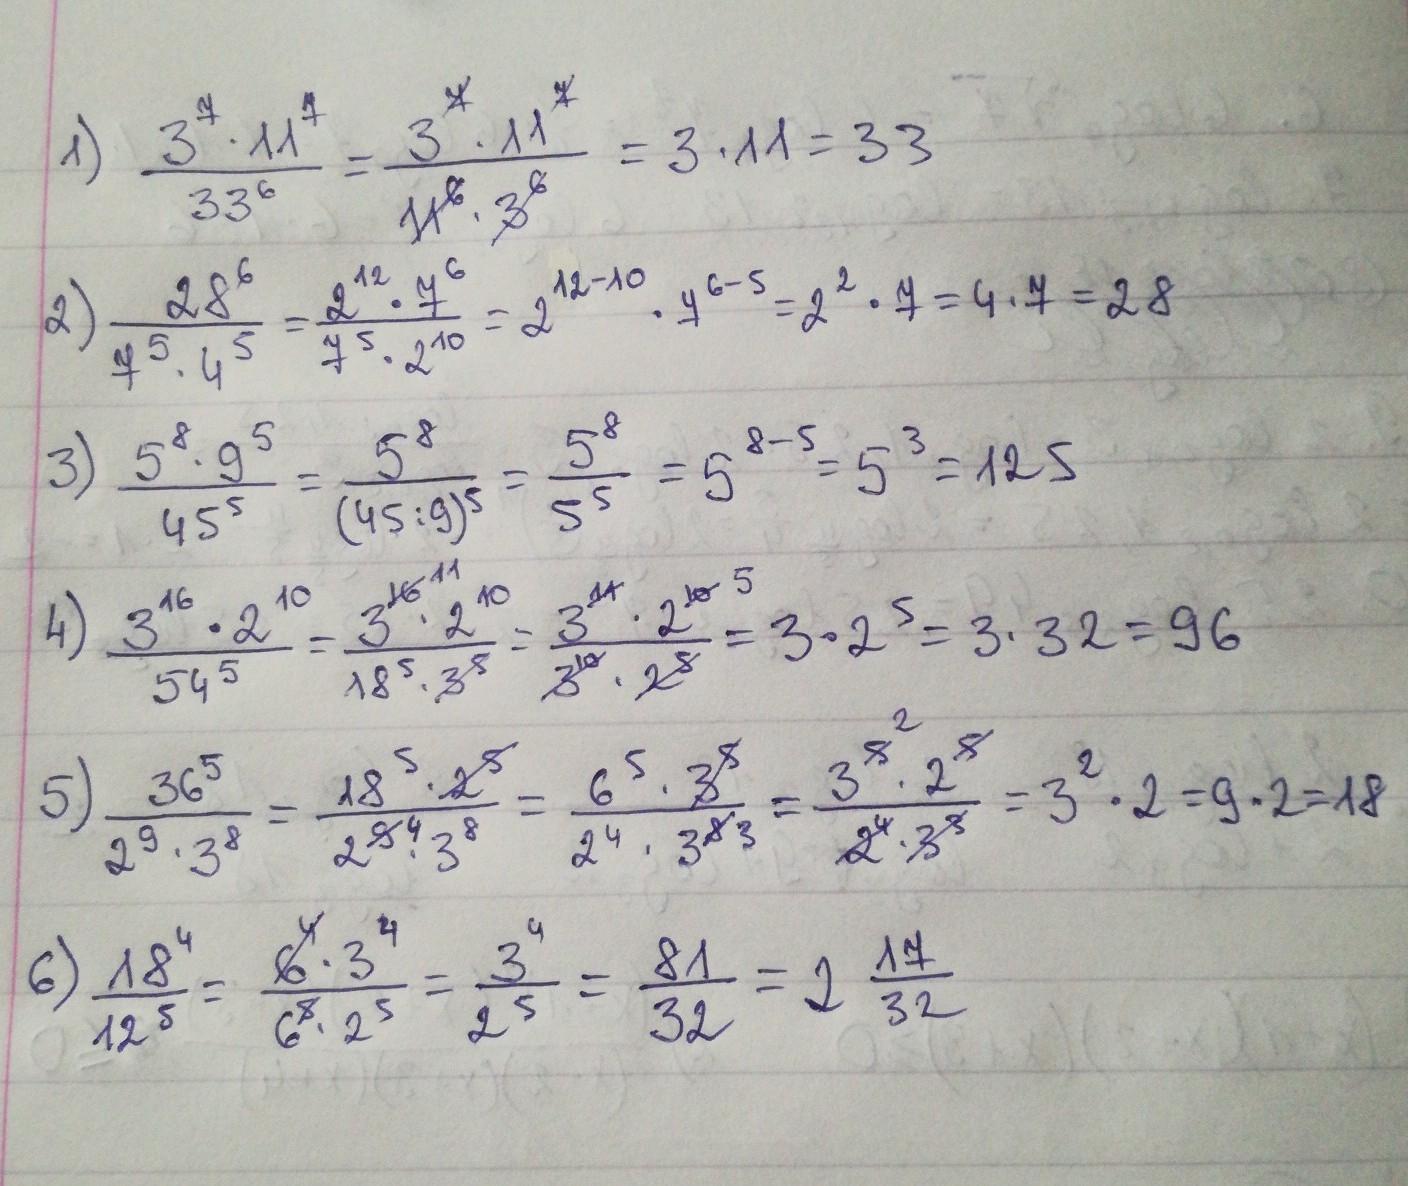 1) \frac{3^7 · 11^7}{33^6} = \frac{3^7 · 11^7}{11^6 · 3^6} = 3 · 11 = 33
2) \frac{28^6}{7^5 · 4^5} = \frac{2^{12} · 7^6}{7^5 · 2^{10}} = 2^{12-10} · 7^{6-5} = 2^2 · 7 = 4 · 7 = 28
3) \frac{5^8 · 9^5}{45^5} = \frac{5^8}{(45:9)^5} = \frac{5^8}{5^5} = 5^{8-5} = 5^3 = 125
4) \frac{3^{16} · 2^{10}}{54^5} = \frac{3^{16 11} · 2^{10}}{18^5 · 3^5} = \frac{3^{11} · 2^{10 5}}{3^{10} · 2^5} = 3 · 2^5 = 3 · 32 = 96
5) \frac{36^5}{2^9 · 3^8} = \frac{18^5 · 2^5}{2^{9 4} · 3^8} = \frac{6^5 · 3^5}{2^4 · 3^{8 3}} = \frac{3^{5 2} · 2^5}{2^4 · 3^3} = 3^2 · 2 = 9 · 2 = 18
6) \frac{18^4}{12^5} = \frac{6^4 · 3^4}{6^5 · 2^5} = \frac{3^4}{2^5} = \frac{81}{32} = 2 \frac{17}{32}